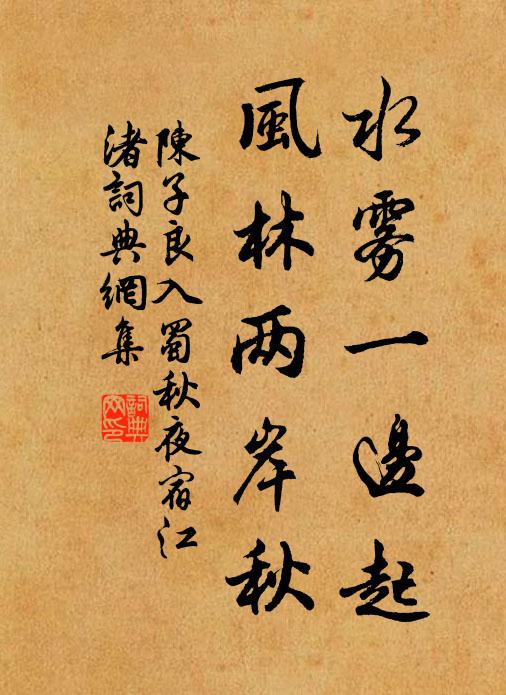 水雾一邊起
風林两岸秋
陳子良入蜀秋夜宿江
渚詞典網集
詞典
网印